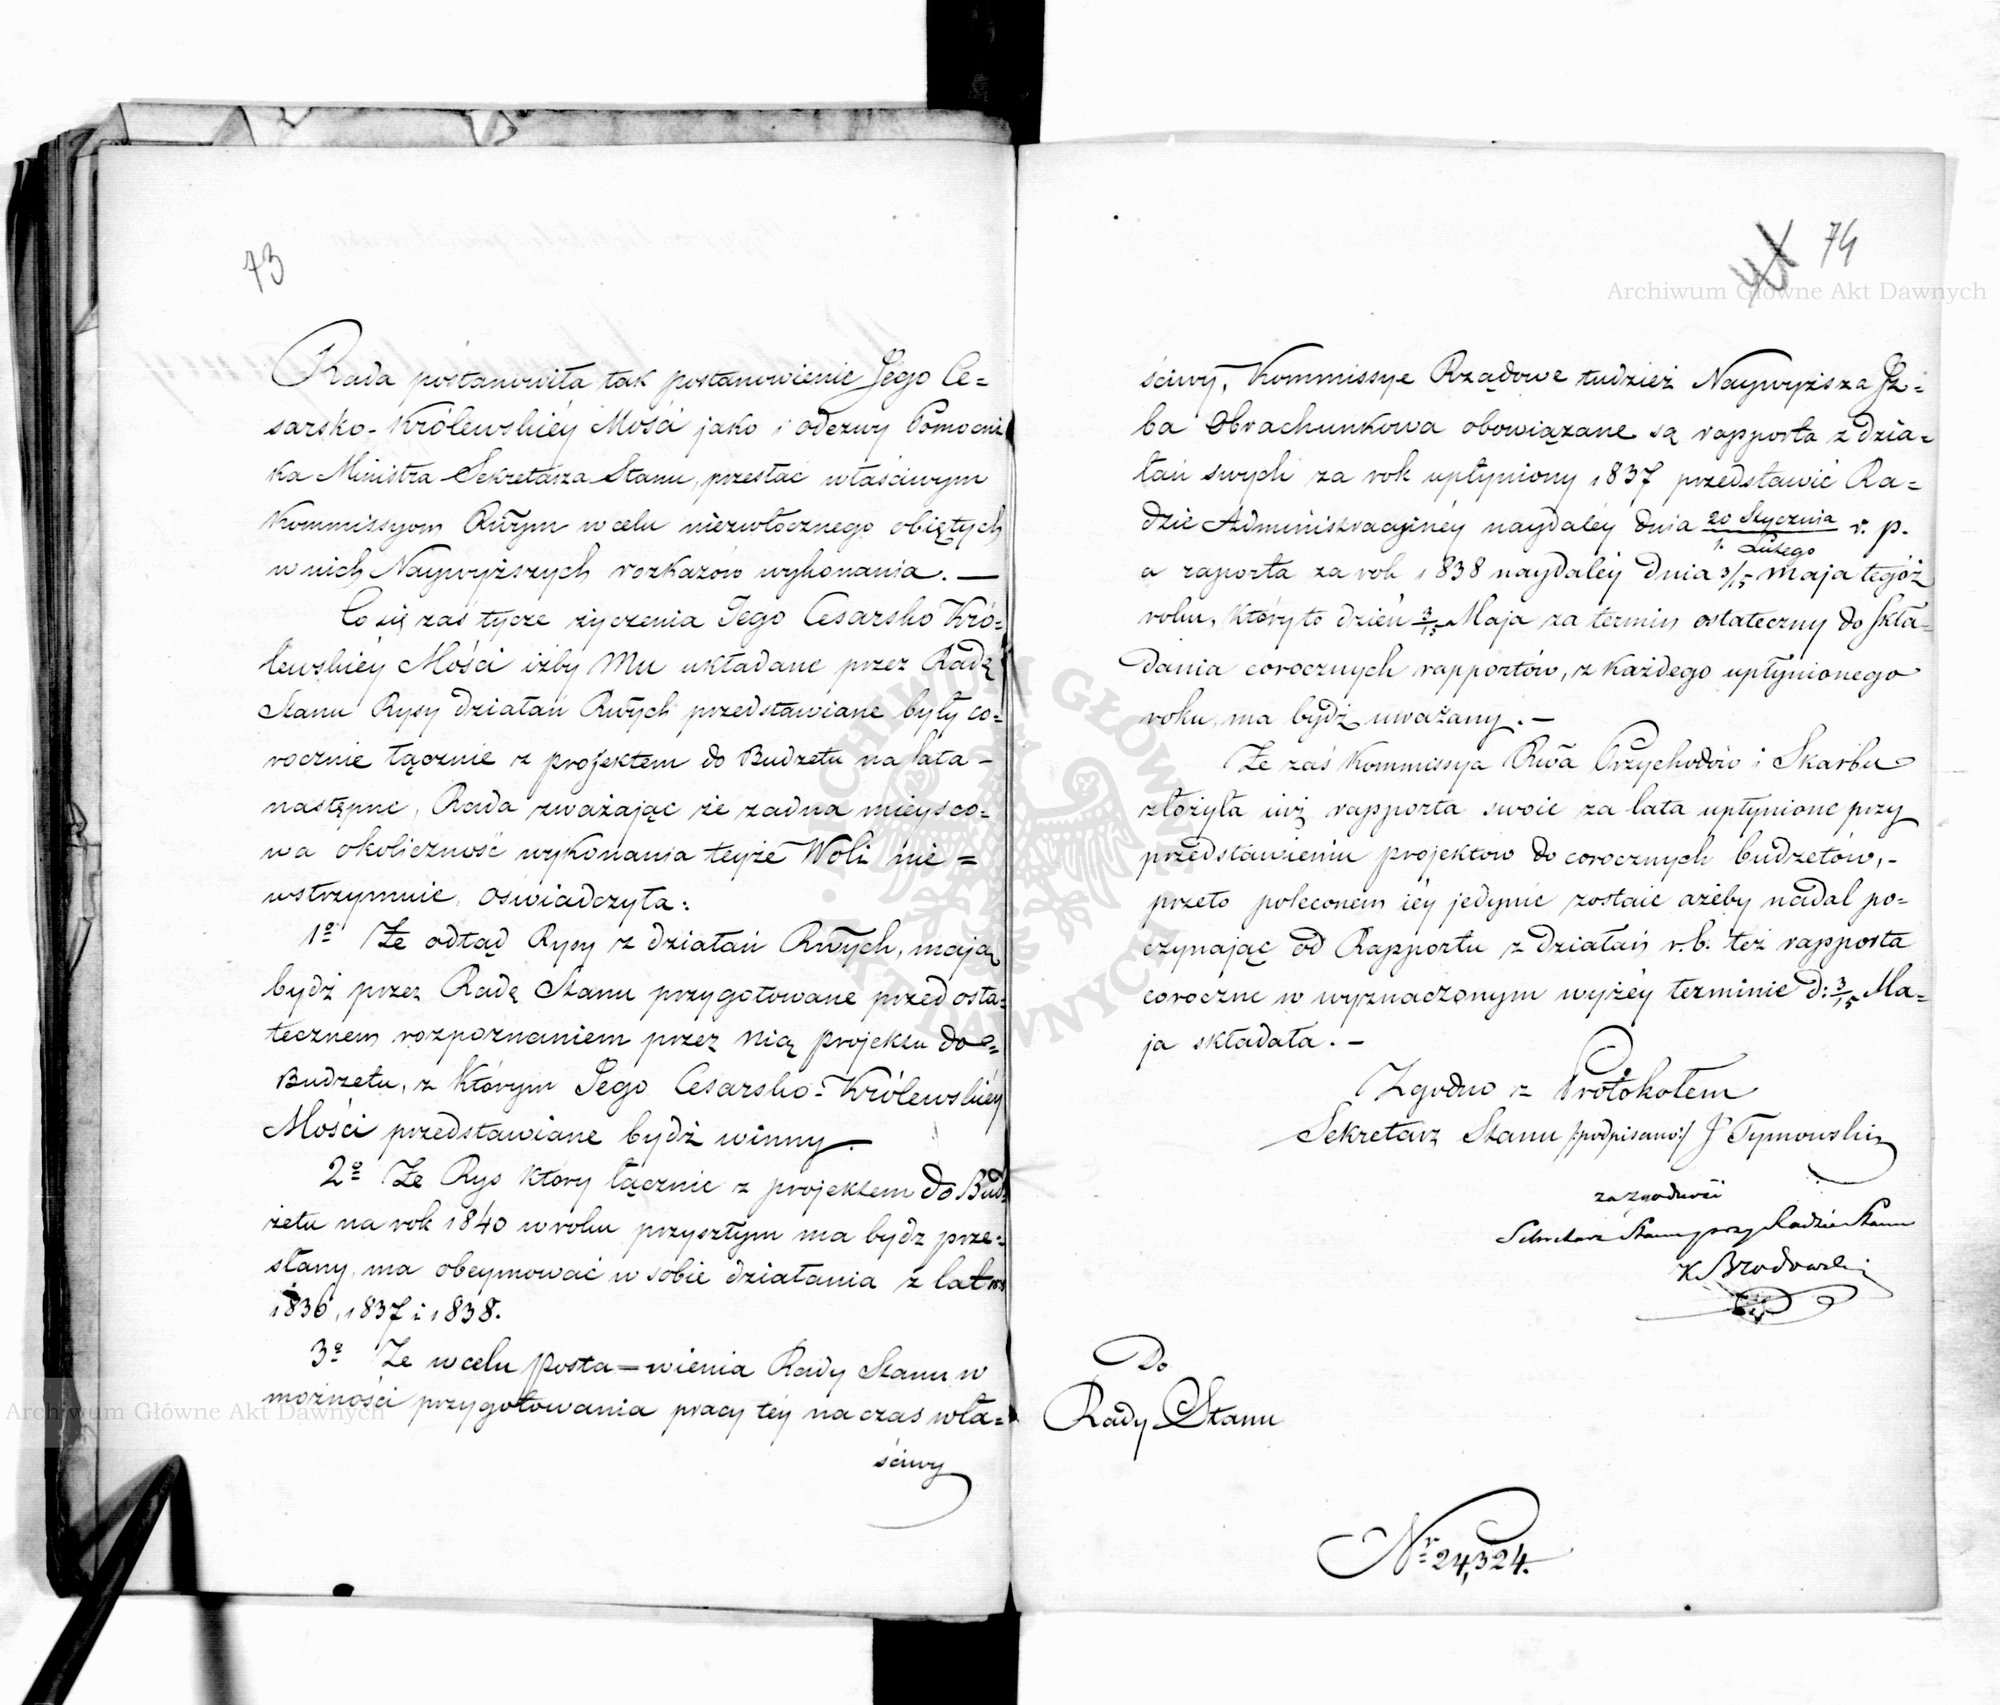 73
Rada postanowiła tak postanowienie Jego Ce=
sarsko-Królewskiéy Mości jako i odezwy Pomocni
ka Ministra Sekretarza Stanu, przesłać właściwym
Kommissyom Rwym w celu niezwłocznego obiętych
w nich Naywyższych rozkazów wykonania. —
Co się zaś tycze życzenia Jego Cesarsko Kró-
lewskiéy Mości iżby Mu układane przez Radę
Stanu Rysy działań Rwych przedstawiane były co-
rocznie łącznie z projektem do Budżetu na lata -
następne, Rada zważając że żadna mieysco-
wa okoliczność wykonania teyże Woli nie =
wstrzymuie, oświadczyła:
1º Że odtąd Rysy z działań Rwych, mają
bydź przez Radę Stanu przygotowane przed osta-
tecznem rozpoznaniem przez nią projektu do=
Budżetu, z którym Jego Cesarsko-Królewskiéy
Mości przedstawiane bydź winny. —
2º Że Rys który łącznie z projektem do Bud-
żetu na rok 1840 w roku przyszłym ma bydź prze-
słany, ma obeymować w sobie działania z lat
1836, 1837 i 1838.
3º Że w celu posta=wienia Rady Stanu w
możności przygotowania pracy téy na czas wła=
ściwy
74
ściwy, Kommissye Rządowe tudzież Naywyższa Iz-
ba Obrachunkowa obowiązane są rapporta z dzia-
łań swych za rok upłyniony 1837 przedstawić Ra-
dzie Administracyinéy naydaléy dnia 20 Stycznia/1. Lutego r. p.
a raporta za rok 1838 naydaléy dnia 3/15 Maja tegóż
roku, który to dzień 3/15 Maja za termin ostateczny do skła-
dania corocznych rapportów, z każdego upłynionego
roku, ma bydź uważany. —
Że zaś Kommissya Rwa Przychodów i Skarbu
złożyła iuż rapporta swoie za lata upłynione przy
przedstawieniu projektow do corocznych budżetów, -
przeto poleconem iéy jedynie zostaie ażeby nadal po-
czynając od Rapportu z działań r. b. też rapporta
coroczne w wyznaczonym wyżéy terminie d: 3/15 Ma-
ja składała. —
Zgodno z Protokołem
Sekretarz Stanu /:podpisano:/ J Tymowski
za zgodność
Sekretarz Stanu przy Radzie Stanu
K Brodowski
Do
Rady Stanu
Nr 24,324.
Archiwum Główne Akt Dawnych
Archiwum Główne Akt Dawnych
ARCHIWUM GŁÓWNE AKT DAWNYCH